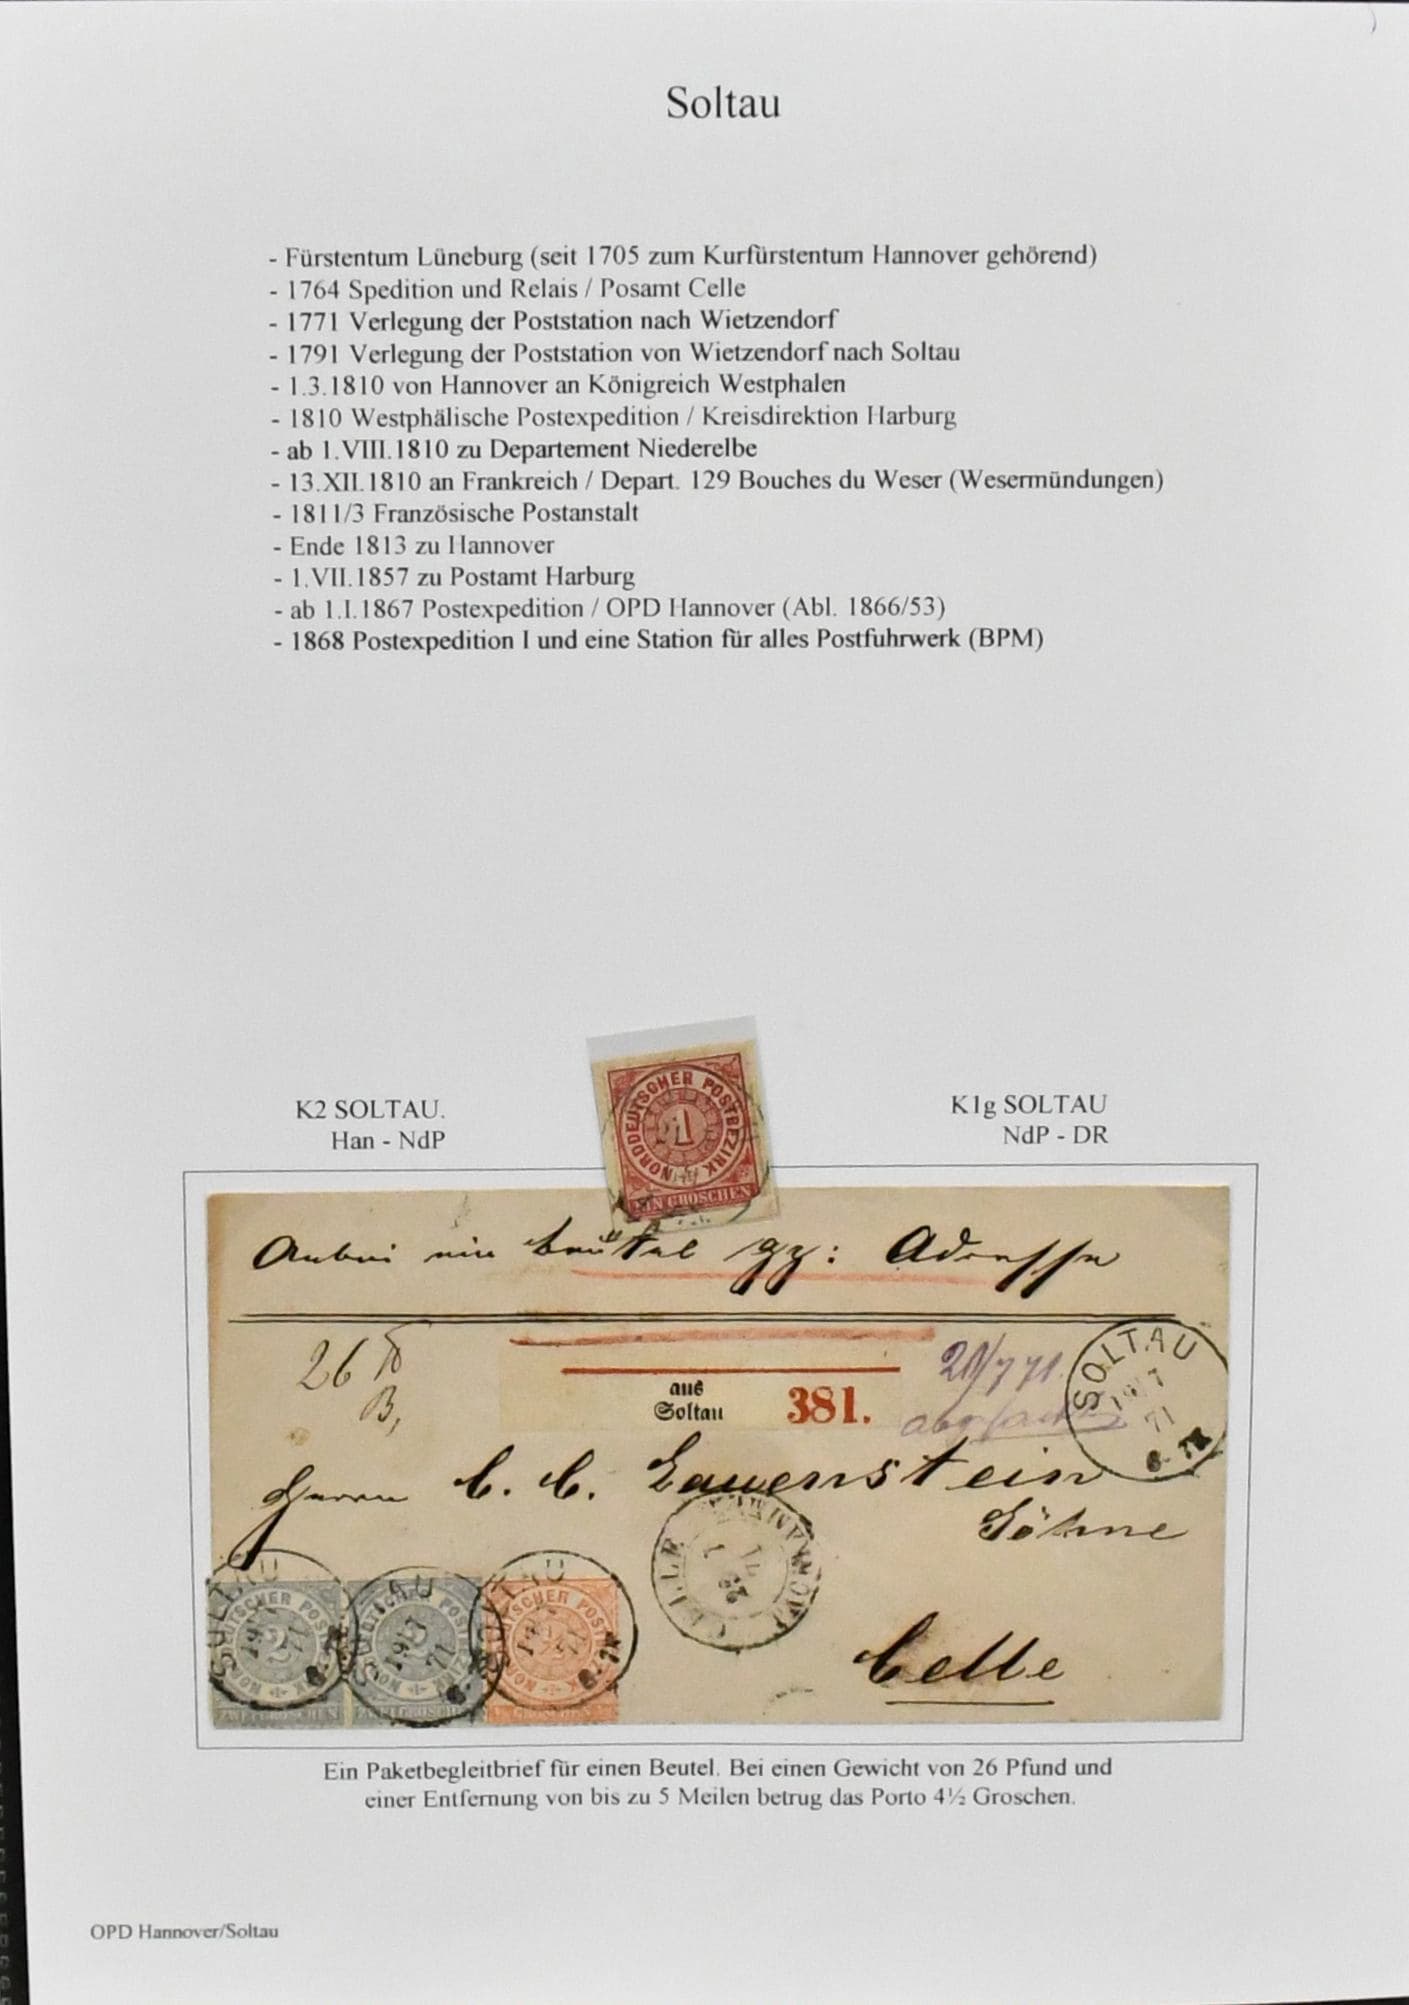 Soltau
- Fürstentum Lüneburg (seit 1705 zum Kurfürstentum Hannover gehörend)
- 1764 Spedition und Relais / Posamt Celle
- 1771 Verlegung der Poststation nach Wietzendorf
- 1791 Verlegung der Poststation von Wietzendorf nach Soltau
- 1.3.1810 von Hannover an Königreich Westphalen
- 1810 Westphälische Postexpedition / Kreisdirektion Harburg
- ab 1.VIII.1810 zu Departement Niederelbe
- 13.XII.1810 an Frankreich / Depart. 129 Bouches du Weser (Wesermündungen)
- 1811/3 Französische Postanstalt
- Ende 1813 zu Hannover
- 1.VII.1857 zu Postamt Harburg
- ab 1.I.1867 Postexpedition / OPD Hannover (Abl. 1866/53)
- 1868 Postexpedition I und eine Station für alles Postfuhrwerk (BPM)
K2 SOLTAU.
Han - NdP
NORDDEUTSCHER POSTBEZIRK
1
EIN GROSCHEN
K1g SOLTAU
NdP - DR
Anbei ein Beutel gz: Adresse
26 ℔
B,
aus
Soltau
381.
20/7 71.
SOLTAU
19/7
71
6-7N
Herrn C. C. Lauenstein
Söhne
CELLE HANNOVER
Celle
SOLTAU
19/7
71
6-7N
NORDDEUTSCHER POSTBEZIRK
2
ZWEI GROSCHEN
SOLTAU
19/7
71
6-7N
NORDDEUTSCHER POSTBEZIRK
ZWEI GROSCHEN
SOLTAU
71
6-7N
NORDDEUTSCHER POSTBEZIRK
1/2
GROSCHEN
Ein Paketbegleitbrief für einen Beutel. Bei einen Gewicht von 26 Pfund und
einer Entfernung von bis zu 5 Meilen betrug das Porto 4½ Groschen.
OPD Hannover/Soltau